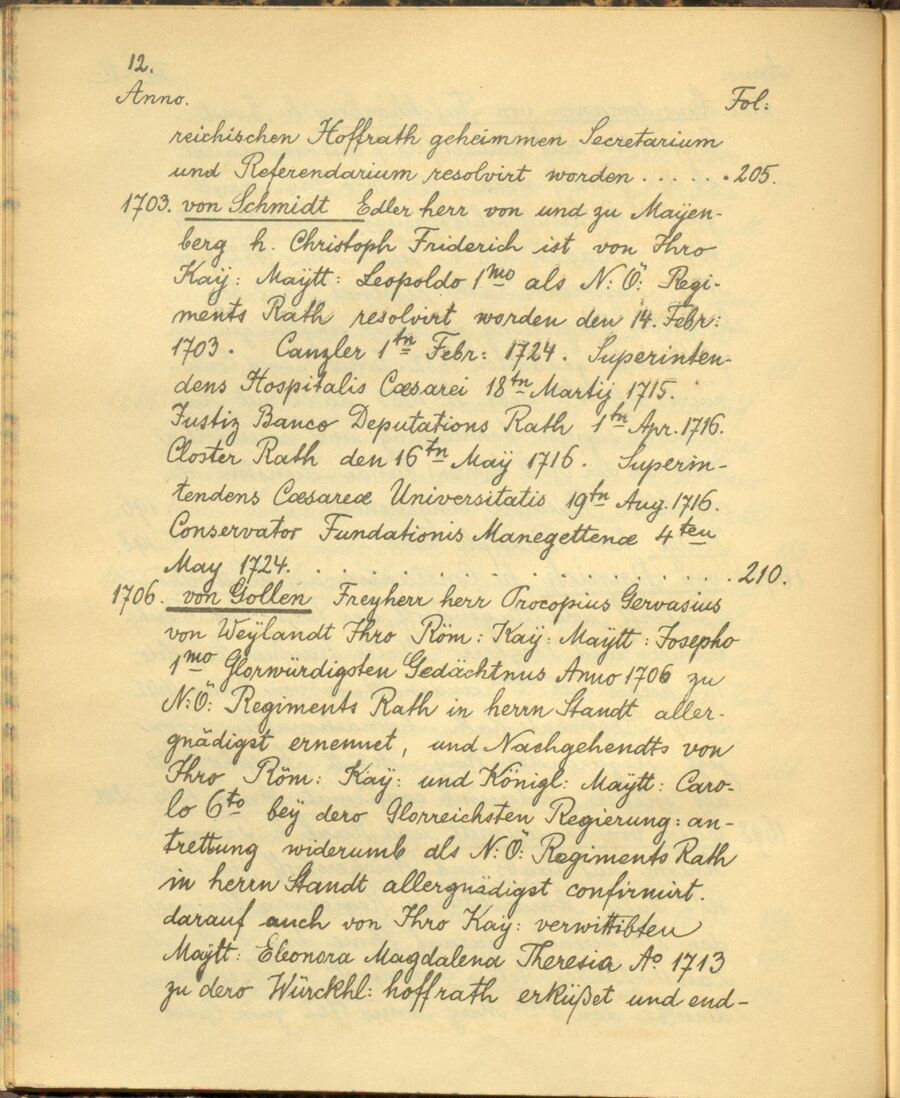 12.
Anno. Fol:
reichischen Hoffrath geheimmen Secretarium
und Referendarium resolvirt worden . . . . . . 205.
1703. von Schmidt Edler herr von und zu Maÿen-
berg h. Christoph Friderich ist von Ihro
Kaÿ: Maÿtt: Leopoldo 1mo als N: Ö: Regi-
ments Rath resolvirt worden den 14. Febr:
1703. Canzler 1tn Febr: 1724. Superinten-
dens Hospitalis Cæsarei 18tn Martij 1715.
Justiz Banco Deputations Rath 1tn Apr. 1716.
Closter Rath den 16tn Maÿ 1716. Superin-
tendens Cæsareæ Universitatis 19tn Aug. 1716.
Conservator Fundationis Manegettenæ 4ten
May 1724. . . . . . . . . . . . . . . . . 210.
1706. von Gollen Freyherr herr Procopius Gervasius
von Weÿlandt Ihro Röm: Kaÿ: Maÿtt: Josepho
1mo Glorwürdigsten Gedächtnus Anno 1706 zu
N: Ö: Regiments Rath in herrn Standt aller-
gnädigst ernennet, und Nachgehendts von
Ihro Röm: Kaÿ: und Königl: Maÿtt: Caro-
lo 6to beÿ dero Glorreichsten Regierung: an-
trettung widerumb als N: Ö: Regiments Rath
in herrn Standt allergnädigst confirmirt.
darauf auch von Ihro Kaÿ: verwittibten
Maÿtt: Eleonora Magdalena Theresia Ao 1713
zu dero Würckhl: hoffrath erküßet und end-